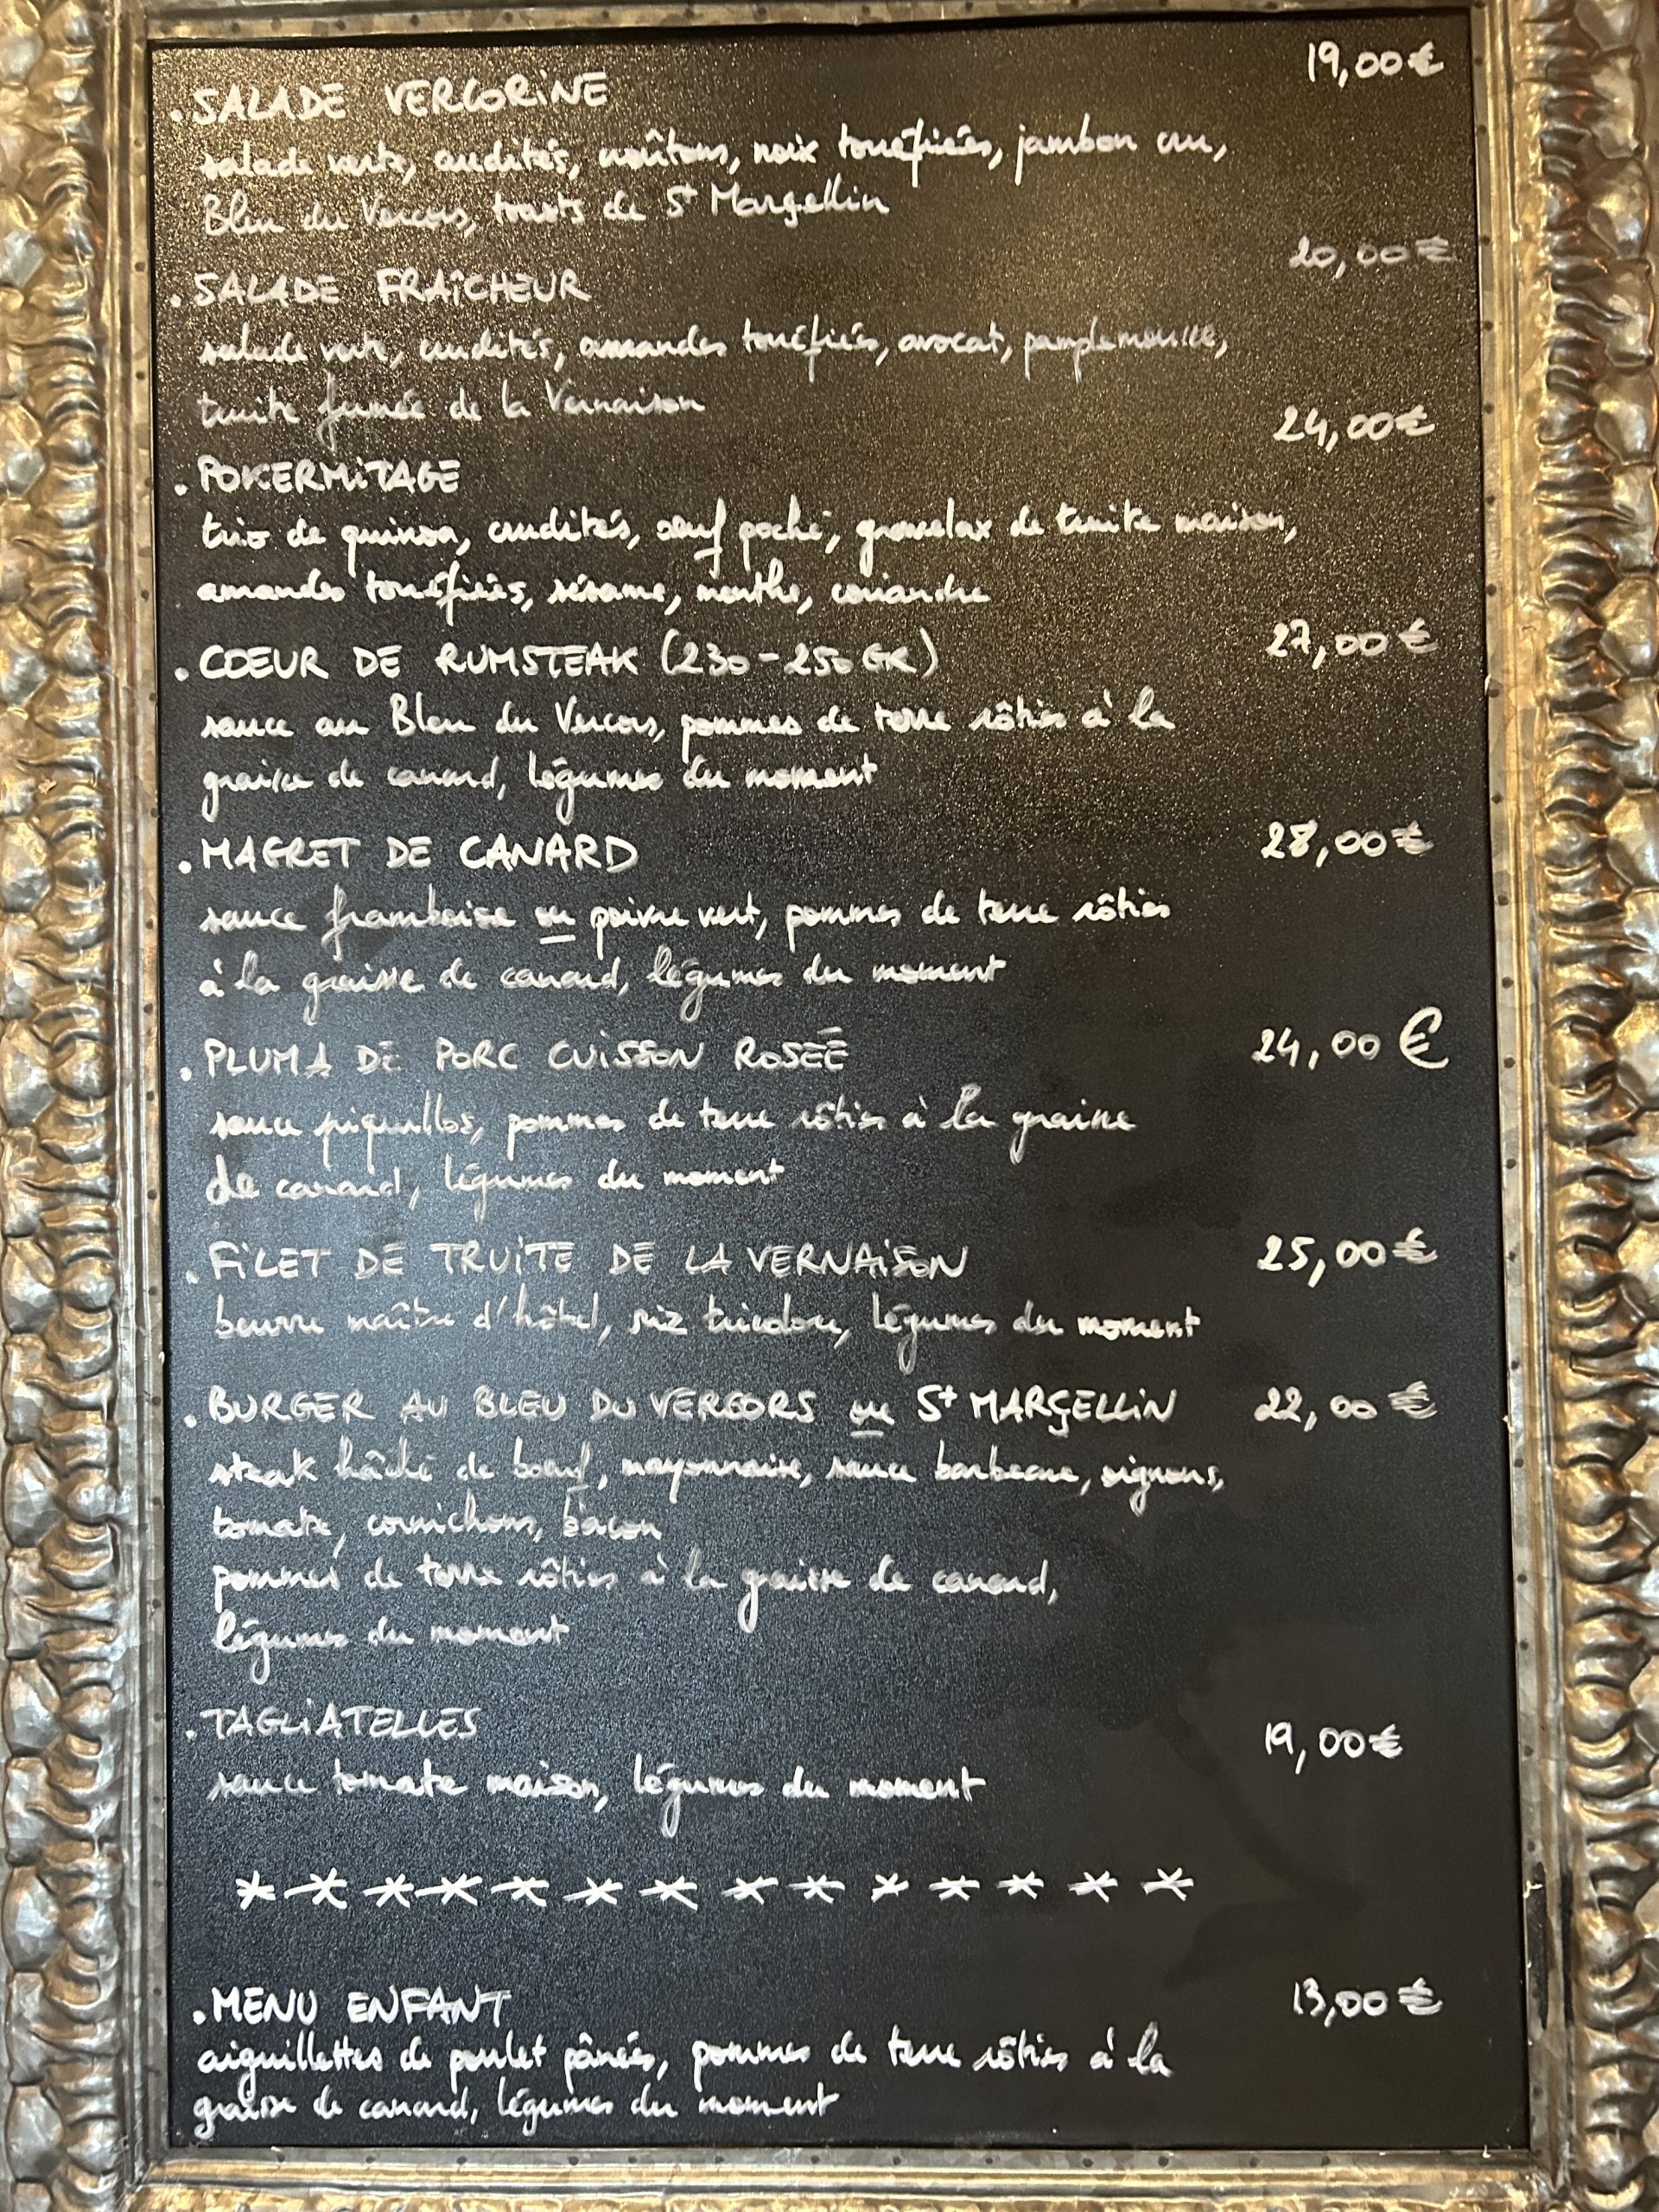 19,00€
. SALADE VERCORINE
salade verte, crudités, croûtons, noix torréfiées, jambon cru,
Bleu du Vercors, toasts de St Marçellin
20,00€
. SALADE FRAÎCHEUR
salade verte, crudités, amandes torréfiées, avocat, pamplemousse,
truite fumée de la Vernaison
24,00€
. POKERMITAGE
trio de quinoa, crudités, oeuf poché, gravelax de truite maison,
amandes torréfiées, sésame, menthe, coriandre
. COEUR DE RUMSTEAK (230-250GR) 27,00€
sauce au Bleu du Vercors, pommes de terre rôties à la
graisse de canard, légumes du moment
. MAGRET DE CANARD 28,00€
sauce framboise ou poivre vert, pommes de terre rôties
à la graisse de canard, légumes du moment
. PLUMA DE PORC CUISSON ROSÉE 24,00 €
sauce piquillos, pommes de terre rôties à la graisse
de canard, légumes du moment
. FILET DE TRUITE DE LA VERNAISON 25,00€
beurre maître d'hôtel, riz tricolore, légumes du moment
. BURGER AU BLEU DU VERCORS ou St MARÇELLIN 22,00 €
steak hâché de boeuf, mayonnaise, sauce barbecue, oignons,
tomate, cornichons, bacon
pommes de terre rôties à la graisse de canard,
légumes du moment
. TAGLIATELLES 19,00€
sauce tomate maison, légumes du moment
* * * * * * * * * * * * * *
. MENU ENFANT 13,00€
aiguillettes de poulet pânées, pommes de terre rôties à la
graisse de canard, légumes du moment